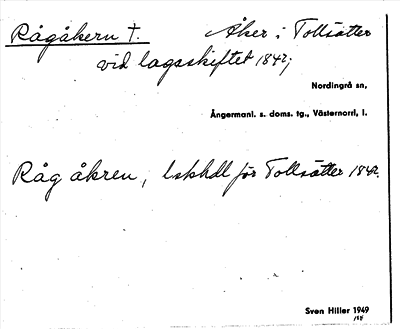 Rågåkern †. Åker i Tollsätter
vid lagaskiftet 1842;
Nordingrå sn,
Ångermanl. s. doms. tg., Västernorrl. l.
Råg åkren, lskhdl för Tollsätter 1842.
Sven Hiller 1949